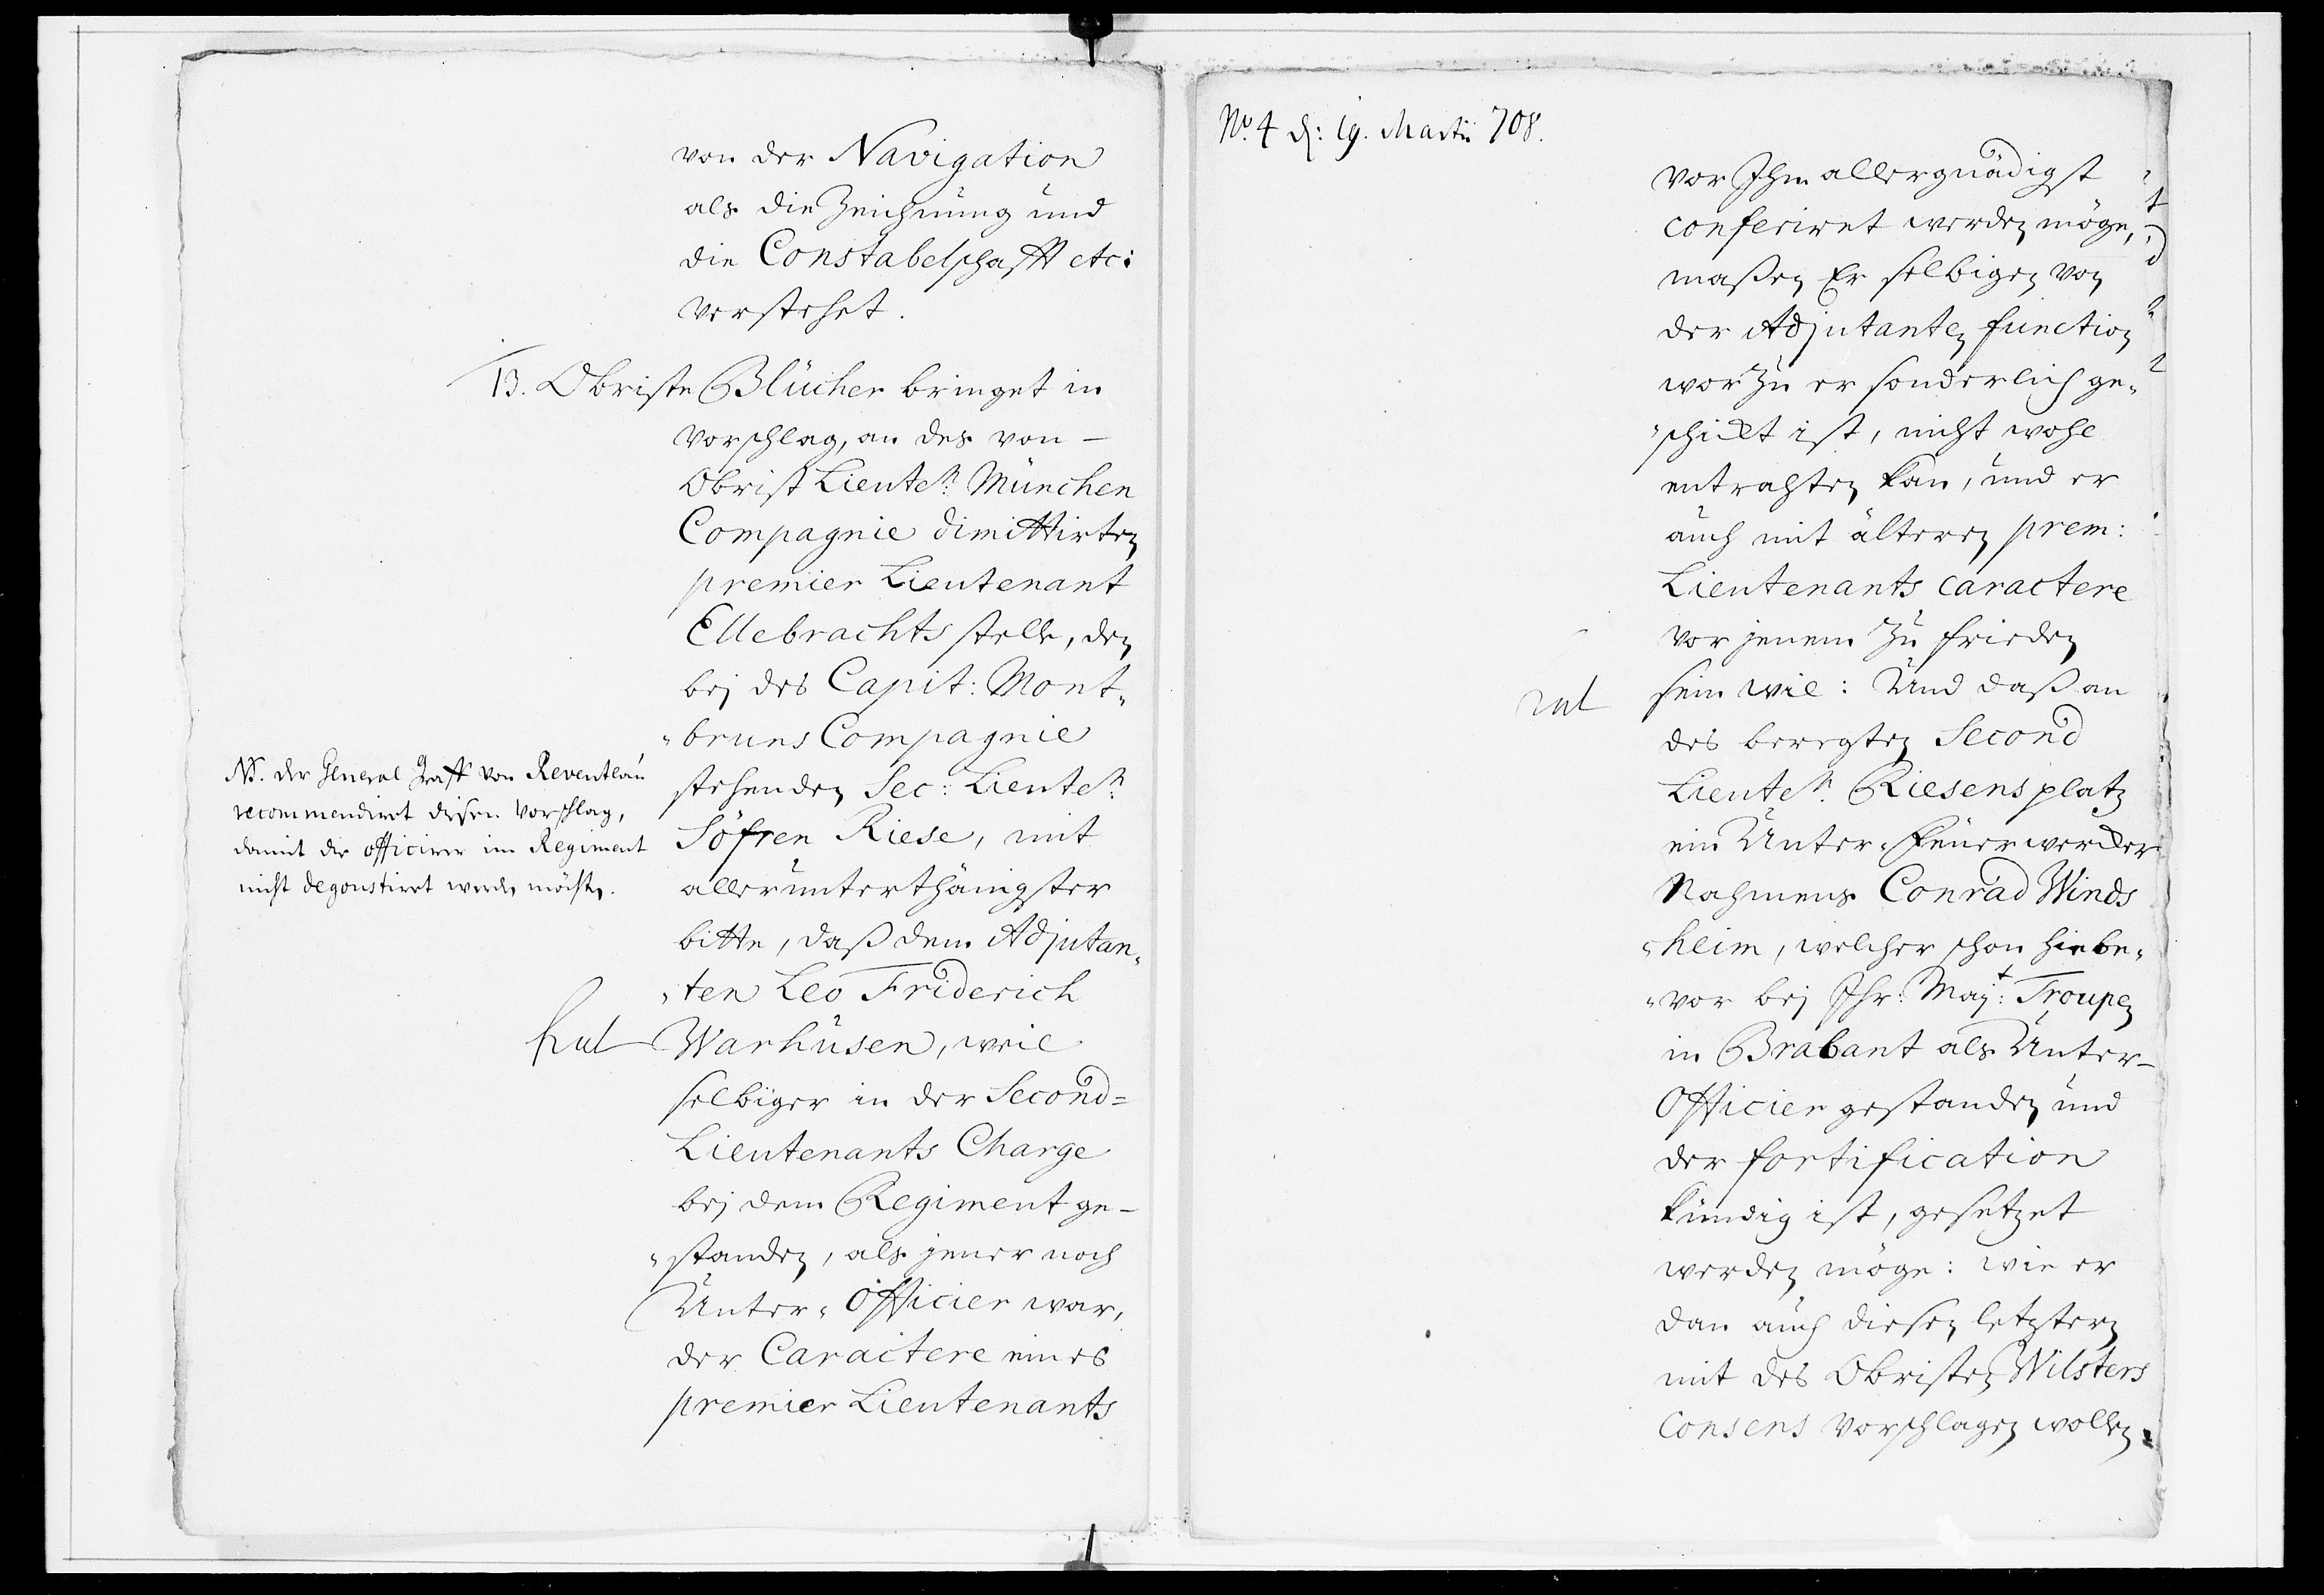 von der Navigation
als die Zeichnung und
die Constabelschafft etc:
verstehet.
13. Obriste Blücher bringet in
vorschlag, an des von –
Obrist Lieuten: München
Compagnie dimittirten
premier Lieutenant
Ellebrachts stelle, den
bej des Capit: Mont„
„bruns Compagnie
stehenden Sec: Lieuten:
Söfren Riese, mit
allerunterthänigster
bitte, daß dem Adjutan„
„ten Leo Friderich
Warhusen, weil
selbiger in der Second=
Lieutenants Charge
bej dem Regiment ge–
„standen, als jener noch
Unter„ Officier war,
der Caractere eines
premier Lieutenants
NB. der General Graff von Reventlau
recommendiret diesen Vorschlag,
damit die officirer im Regiment
nicht degoustiret werden möchten.
No. 4 d: 19. Martii 708.
vor Ihm allergnädigst
conferiret werden möge,
maßen Er selbigen von
der Adjutanten function
worzu er sonderlich ge„
„schickt ist, nicht wohl
entrahten kan, und er
auch mit älteren prem:
Lieutenants caractere
vor jenem zu frieden
sein wil: Und daß an
des beregten Second
Lieuten: Riesens platz
ein Unter„Feuerwercker
Nahmens Conrad Winds
„heim, welcher schon hiebe„
„vor bej Ihr: Maj:t Troupen
in Brabant als Unter–
Officier gestanden und
der fortification
kündig ist, gesetzet
werden möge: wie er
dan auch diesen letztern
mit des Obristen Wilsters
Consens vorschlagen wollen.